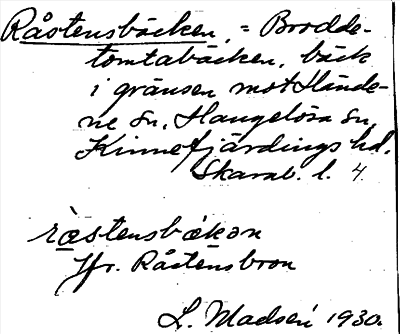 Råstensbäcken, = Brodde-
tomtabäcken, bäck
i gränsen mot Hände-
ne sn, Haugelösa sn,
Kinnefjärdings hd.
Skarab. l. 4
ràstensbækən
Jfr. Råstensbron
L. Madsén 1930.